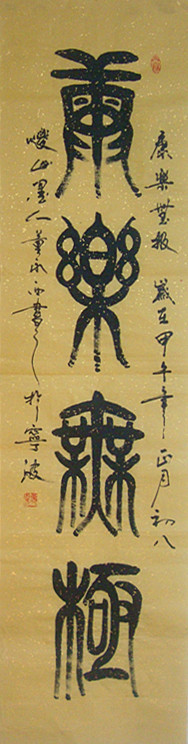 康樂無極 歲在甲午年正月初八
康樂無極
山墨人董永書之於寧波